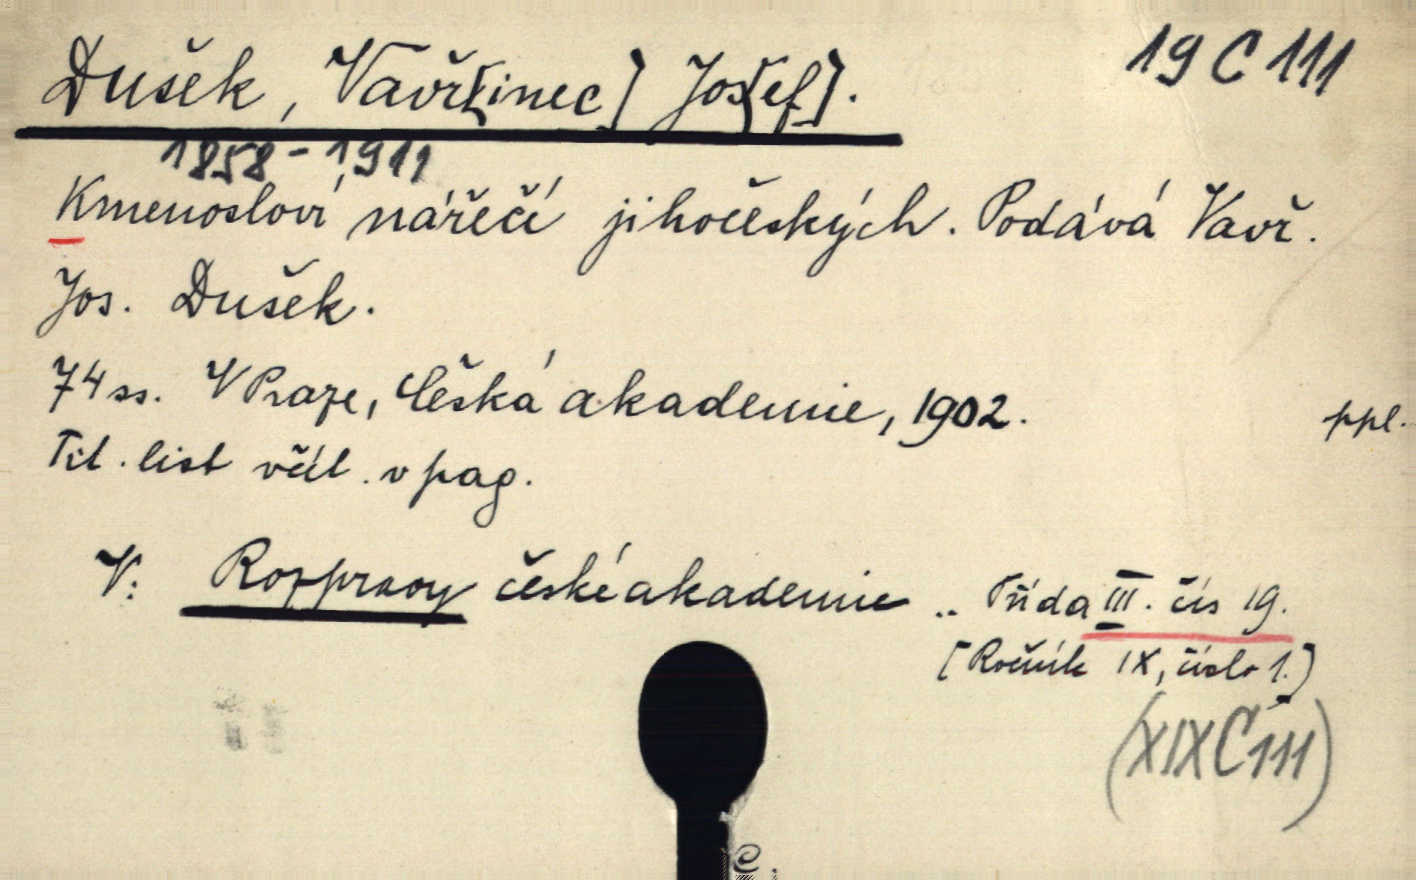 19 C 111
Dušek, Vavř[inec] Jos[ef].
1858-1911
Kmenosloví nářečí jihočeských. Podává Vavř.
Jos. Dušek.
74 ss. V Praze, Česká akademie, 1902.
ppl.
Tit. list včít. v pag.
V: Rozpravy české akademie .. Třída III. čís 19.
[Ročník IX, číslo 1.]
(XIX C 111)